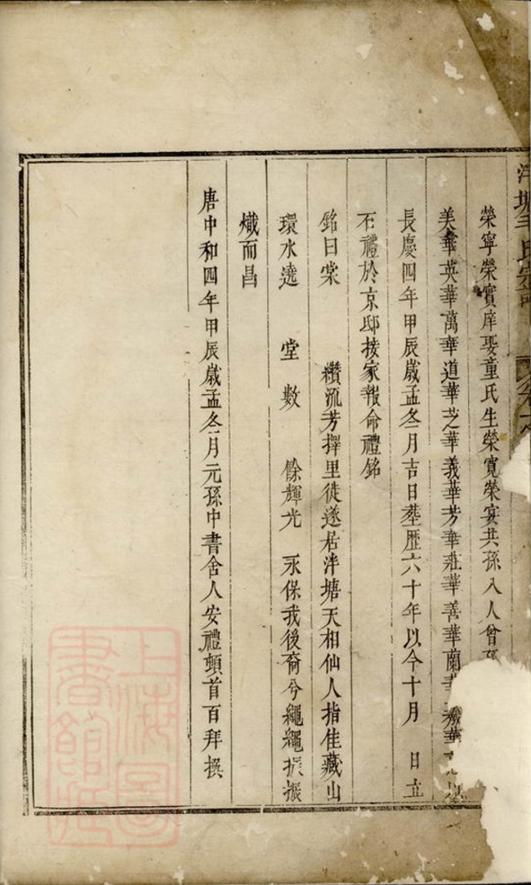 榮寧榮實庠娶童氏生榮寬榮宴共孫八人曾孫
美華英華萬華道華芝華義華芳華莊華善華蘭華
長慶四年甲辰歲孟冬一月吉日塟歷六十年以今十月 日立
石禮於京邸接家報命禮銘
銘曰棠 纘流芳擇里徙遂居泮塘天相仙人指佳藏山
環水遶 堂數 餘輝光 永保我後裔兮繩繩振振
熾而昌
唐中和四年甲辰歲孟冬一月元孫中書舍人安禮頓首百拜撰
上海圖書館藏